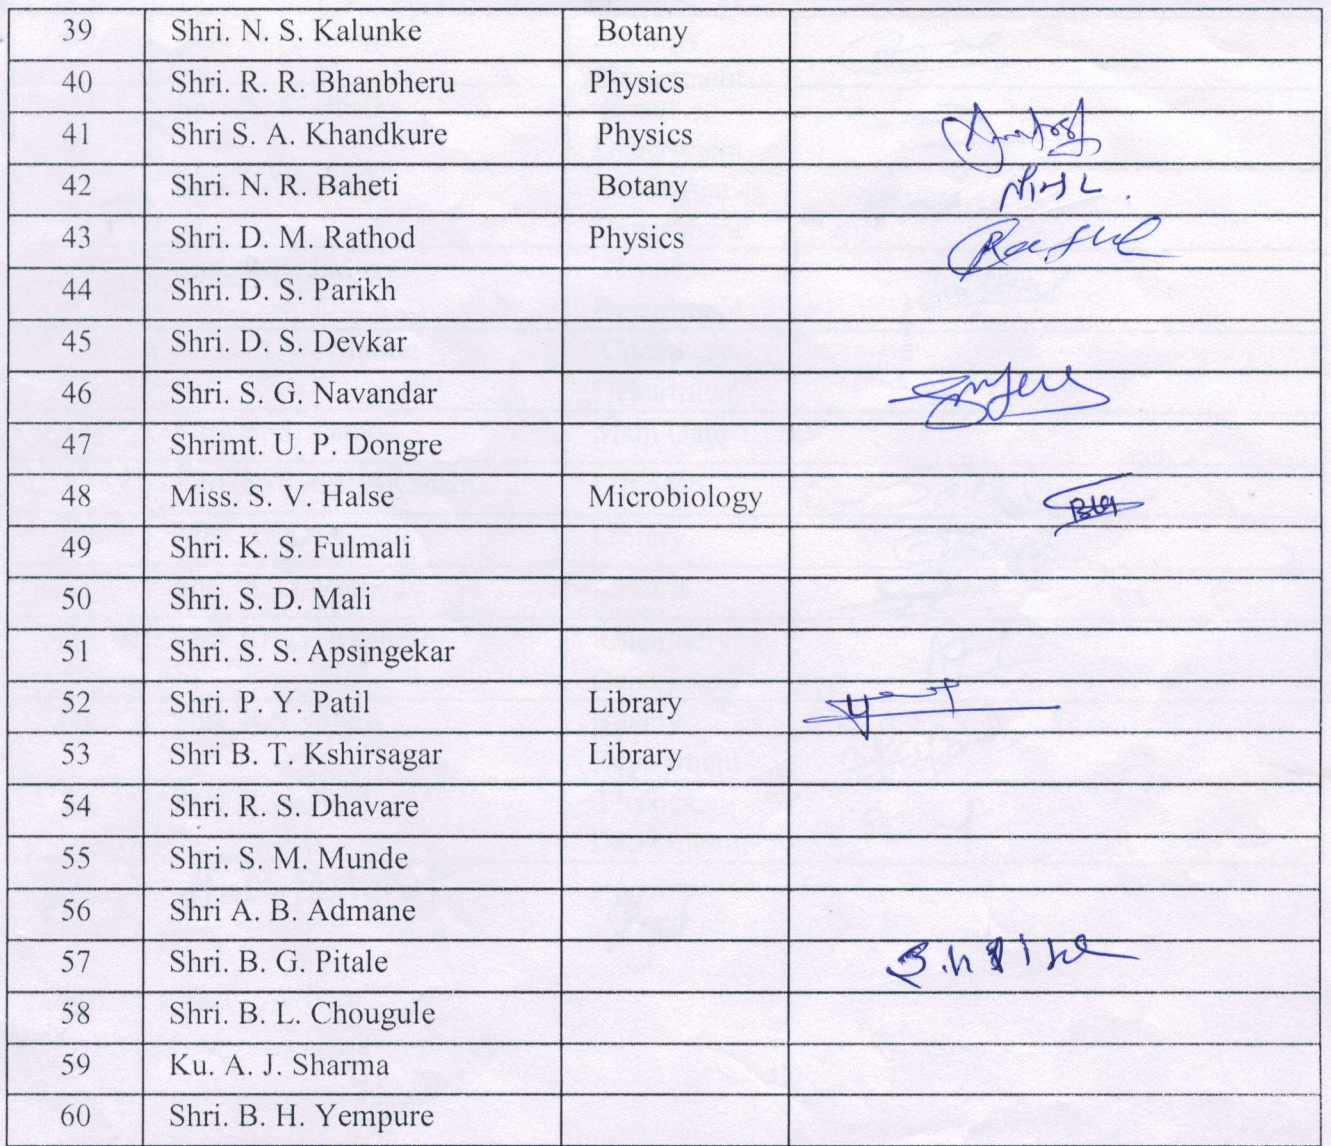 39 Shri. N. S. Kalunke Botany
40 Shri. R. R. Bhanbheru Physics
41 Shri S. A. Khandkure Physics
42 Shri. N. R. Baheti Botany
43 Shri. D. M. Rathod Physics
44 Shri. D. S. Parikh
45 Shri. D. S. Devkar
46 Shri. S. G. Navandar
47 Shrimt. U. P. Dongre
48 Miss. S. V. Halse Microbiology
49 Shri. K. S. Fulmali
50 Shri. S. D. Mali
51 Shri. S. S. Apsingekar
52 Shri. P. Y. Patil Library
53 Shri B. T. Kshirsagar Library
54 Shri. R. S. Dhavare
55 Shri. S. M. Munde
56 Shri A. B. Admane
57 Shri. B. G. Pitale
58 Shri. B. L. Chougule
59 Ku. A. J. Sharma
60 Shri. B. H. Yempure